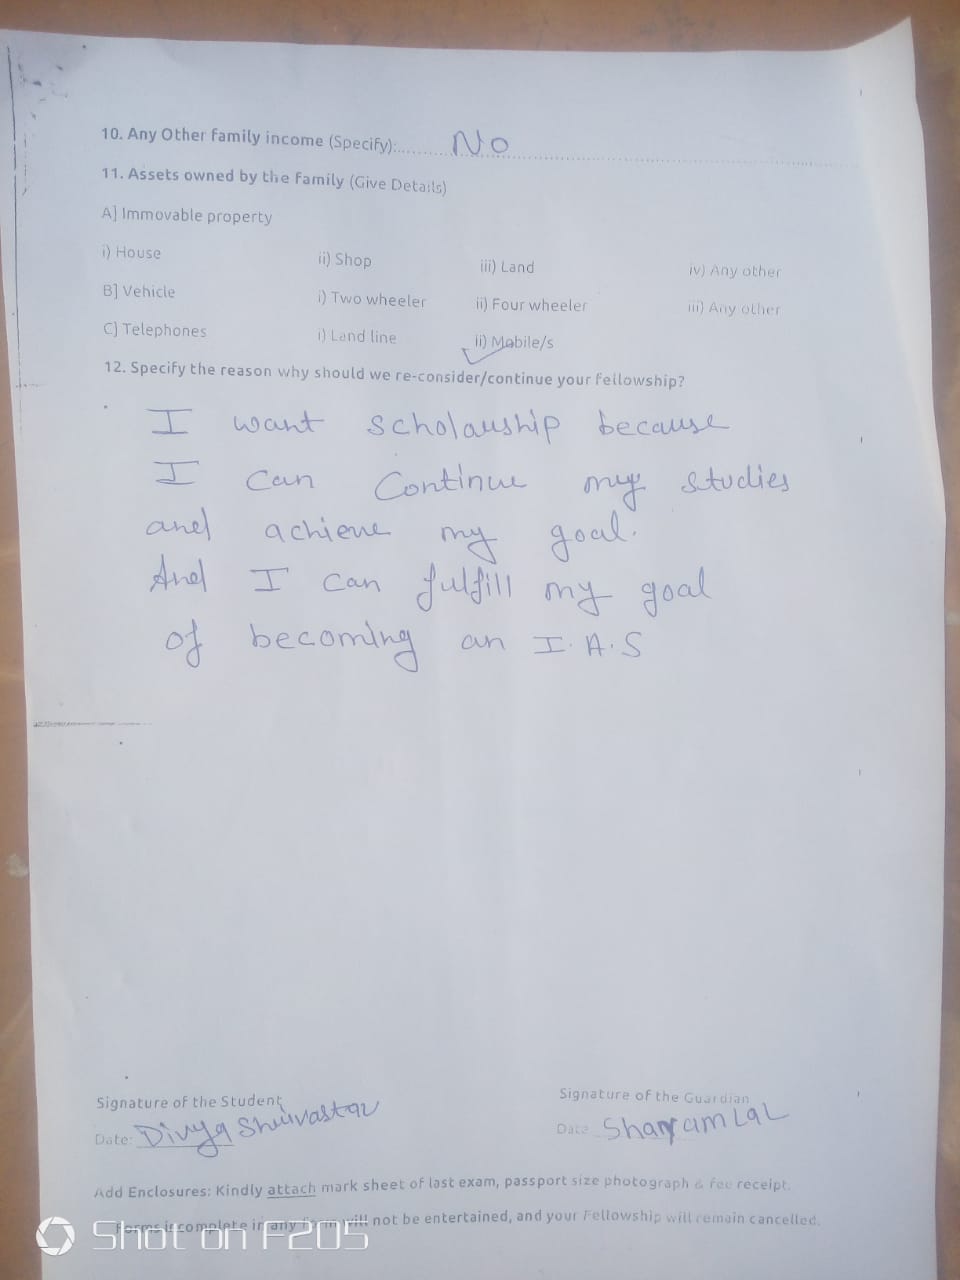 10. Any Other family income (Specify):............ No
11. Assets owned by the Family (Give Details)
A] Immovable property
i) House ii) Shop iii) Land iv) Any other
B] Vehicle i) Two wheeler ii) Four wheeler iii) Any other
C] Telephones i) Land line ii) Mobile/s
12. Specify the reason why should we re-consider/continue your fellowship?
I want scholarship because
I can continue my studies
and achieve my goal.
And I can fulfill my goal
of becoming an I.A.S
Signature of the Student Signature of the Guardian
Date: Divya Shrivastav Date Shayam Lal
Add Enclosures: Kindly attach mark sheet of last exam, passport size photograph & fee receipt.
Forms incomplete in any form will not be entertained, and your Fellowship will remain cancelled.
Shot on F205